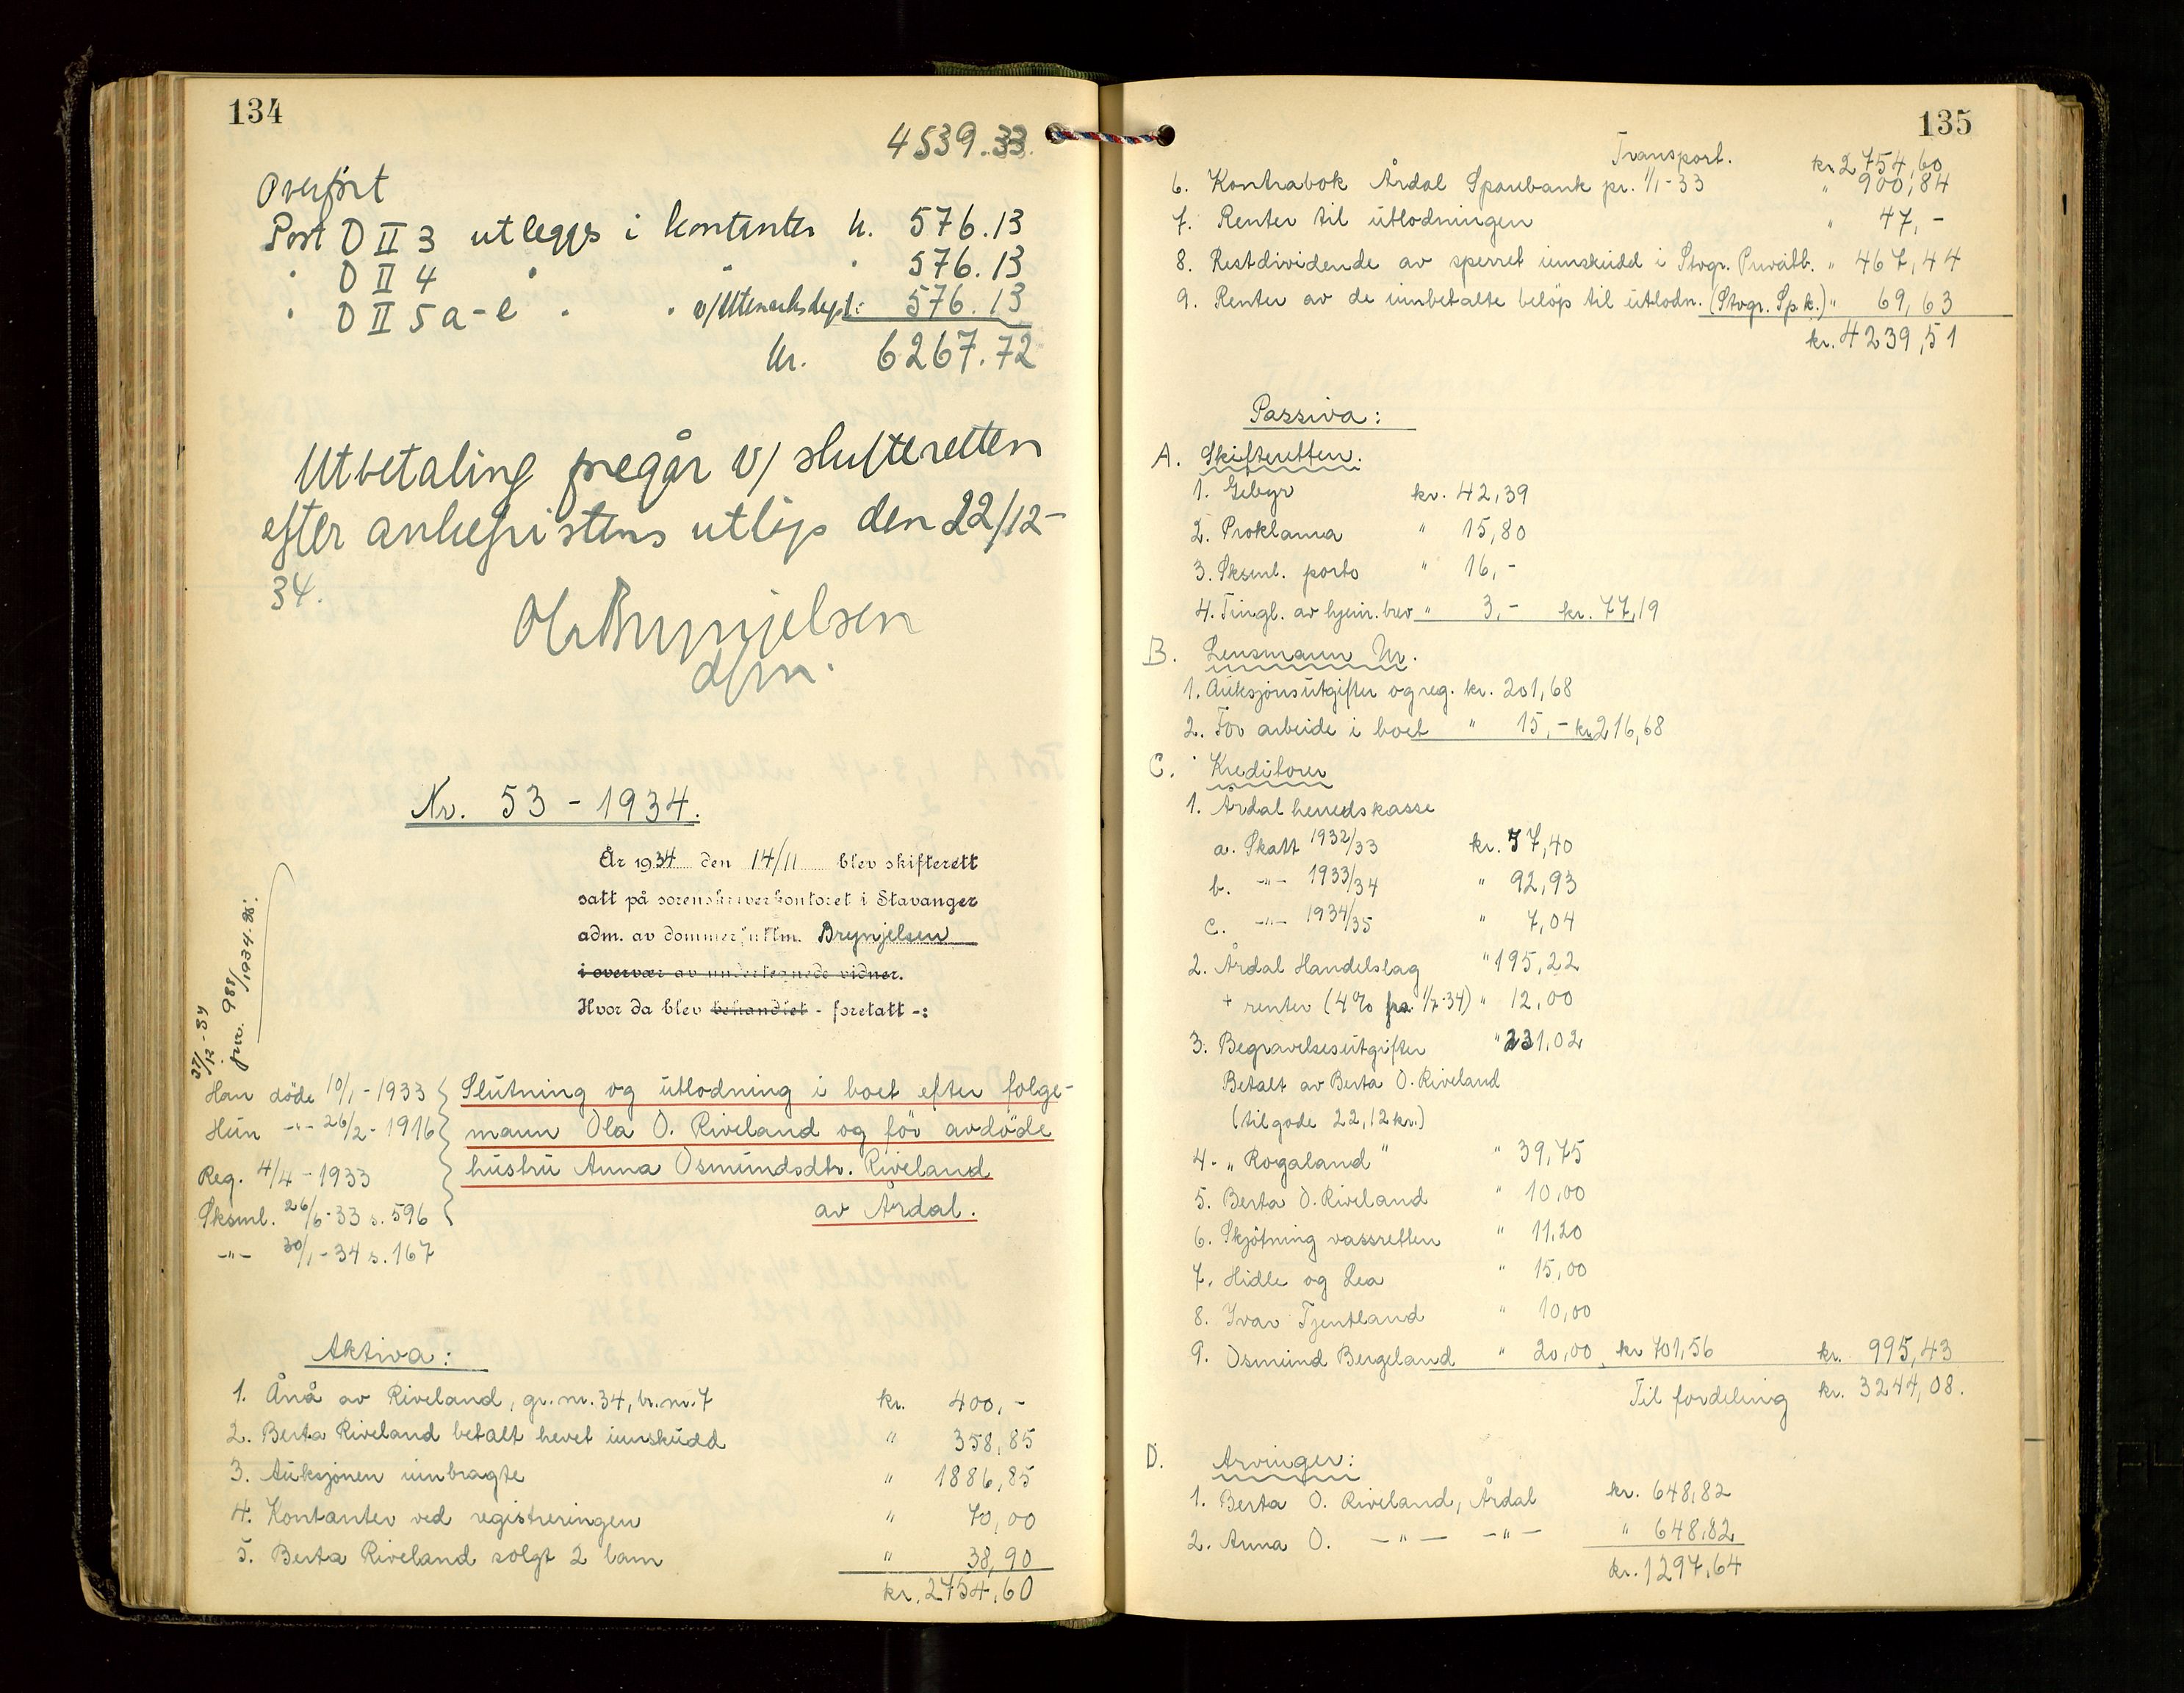 134
4539.33.
Overført
Post D II 3 utlegges i kontanter kr. 576.13
" D II 4 " " " 576.13
" D II 5 a-e " " v/Utenriksdept: 576.13
kr. 6267.72
Utbetaling foregår v/ skifteretten
efter ankefristens utløp den 22/12-
34.
Brynjelsen
dfm.
Nr. 53 - 1934.
År 1934 den 14/11 blev skifterett
satt på sorenskriverkontoret i Stavanger
adm. av dommerfullm. Brynjelsen
i overvær av undertegnede vidner.
Hvor da blev behandlet - foretatt -:
27/12-34
jnr. 988/1934.
Han döde 10/1-1933
Hun -"- 26/2-1916
Reg. 4/4-1933
Sksml. 26/6-33 s. 596
-"- 30/1-34 s. 167
Slutning og utlodning i boet efter folge-
mann Ola O. Riveland og för avdöde
hustru Anna Osmundsdtr. Riveland
av Årdal.
Aktiva:
1. Ånå av Riveland, gr.nr. 34, br.nr. 7 kr. 400,-
2. Berta Riveland betalt hevet innskudd " 358,85
3. Auksjonen innbragte " 1886,85
4. Kontanter ved registreringen " 70,00
5. Berta Riveland solgt 2 lam " 38,90
kr. 2754,60
135
Transport. kr 2754,60
6. Kontrabok Årdal Sparebank pr. 1/1-33 " 900,84
7. Renter til utlodningen " 47,-
8. Restdividende av sperret innskudd i Stvgr. Privatb. " 467,44
9. Renter av de innbetalte belöp til utlodn. (Stvgr. Sp.k.) " 69,63
kr. 4239,51
Passiva:
A. Skifteretten.
1. Gebyr kr. 42,39
2. Proklama " 15,80
3. Sksml. porto " 16,-
4. Tingl. av hjem.brev " 3,- kr. 77,19
B. Lensmann
1. Auksjonsutgifter og reg. kr. 201,68
2. For arbeide i boet " 15,- kr 216,68
C. Kreditorer
1. Årdal herredskasse
a. Skatt 1932/33 kr. 57,40
b. -"- 1933/34 " 92,93
c. -"- 1934/35 " 7,04
2. Årdal Handelslag " 195,22
+ renter (4% fra 1/7-34) " 12,00
3. Begravelsesutgifter " 231,02
Betalt av Berta O. Riveland
(tilgode 22,12 kr.)
4. "Rogaland" " 39,75
5. Berta O. Riveland " 10,00
6. Skjötning vassretten " 11,20
7. Hidle og Lea " 15,00
8. Ivar Tjentland " 10,00
9. Osmund Bergeland " 20,00 kr 701,56 kr. 995,43
Til fordeling kr. 3244,08.
D. Arvinger:
1. Berta O. Riveland, Årdal kr. 648,82
2. Anna O. -"- -"- " 648,82
kr. 1297,64